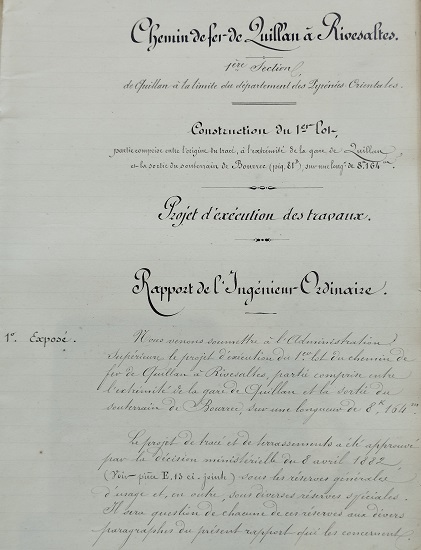 Chemin de fer de Quillan à Rivesaltes.
1ère Section
de Quillan à la limite du département des Pyrénées Orientales.
Construction du 1er lot,
partie comprise entre l'origine du tracé, à l'extrémité de la gare de Quillan
et la sortie du souterrain de Bourrec (piq. 81) sur une longr de 8k.164m.
Projet d'exécution des travaux.
Rapport de l'Ingénieur Ordinaire.
1o. Exposé.
Nous venons soumettre à l'Administration
Supérieure le projet d'exécution du 1er lot du chemin de
fer de Quillan à Rivesaltes, partie comprise entre
l'extrémité de la gare de Quillan et la sortie du
souterrain de Bourrec, sur une longueur de 8k.164m.
Le projet de tracé et de terrassements a été approuvé
par la décision ministérielle du 8 avril 1882
(Voir pièce E, 13 ci-joint) sous les réserves générales
d'usage et, en outre, sous diverses réserves spéciales.
Il sera question de chacune de ces réserves aux divers
paragraphes du présent rapport qui les concernent.